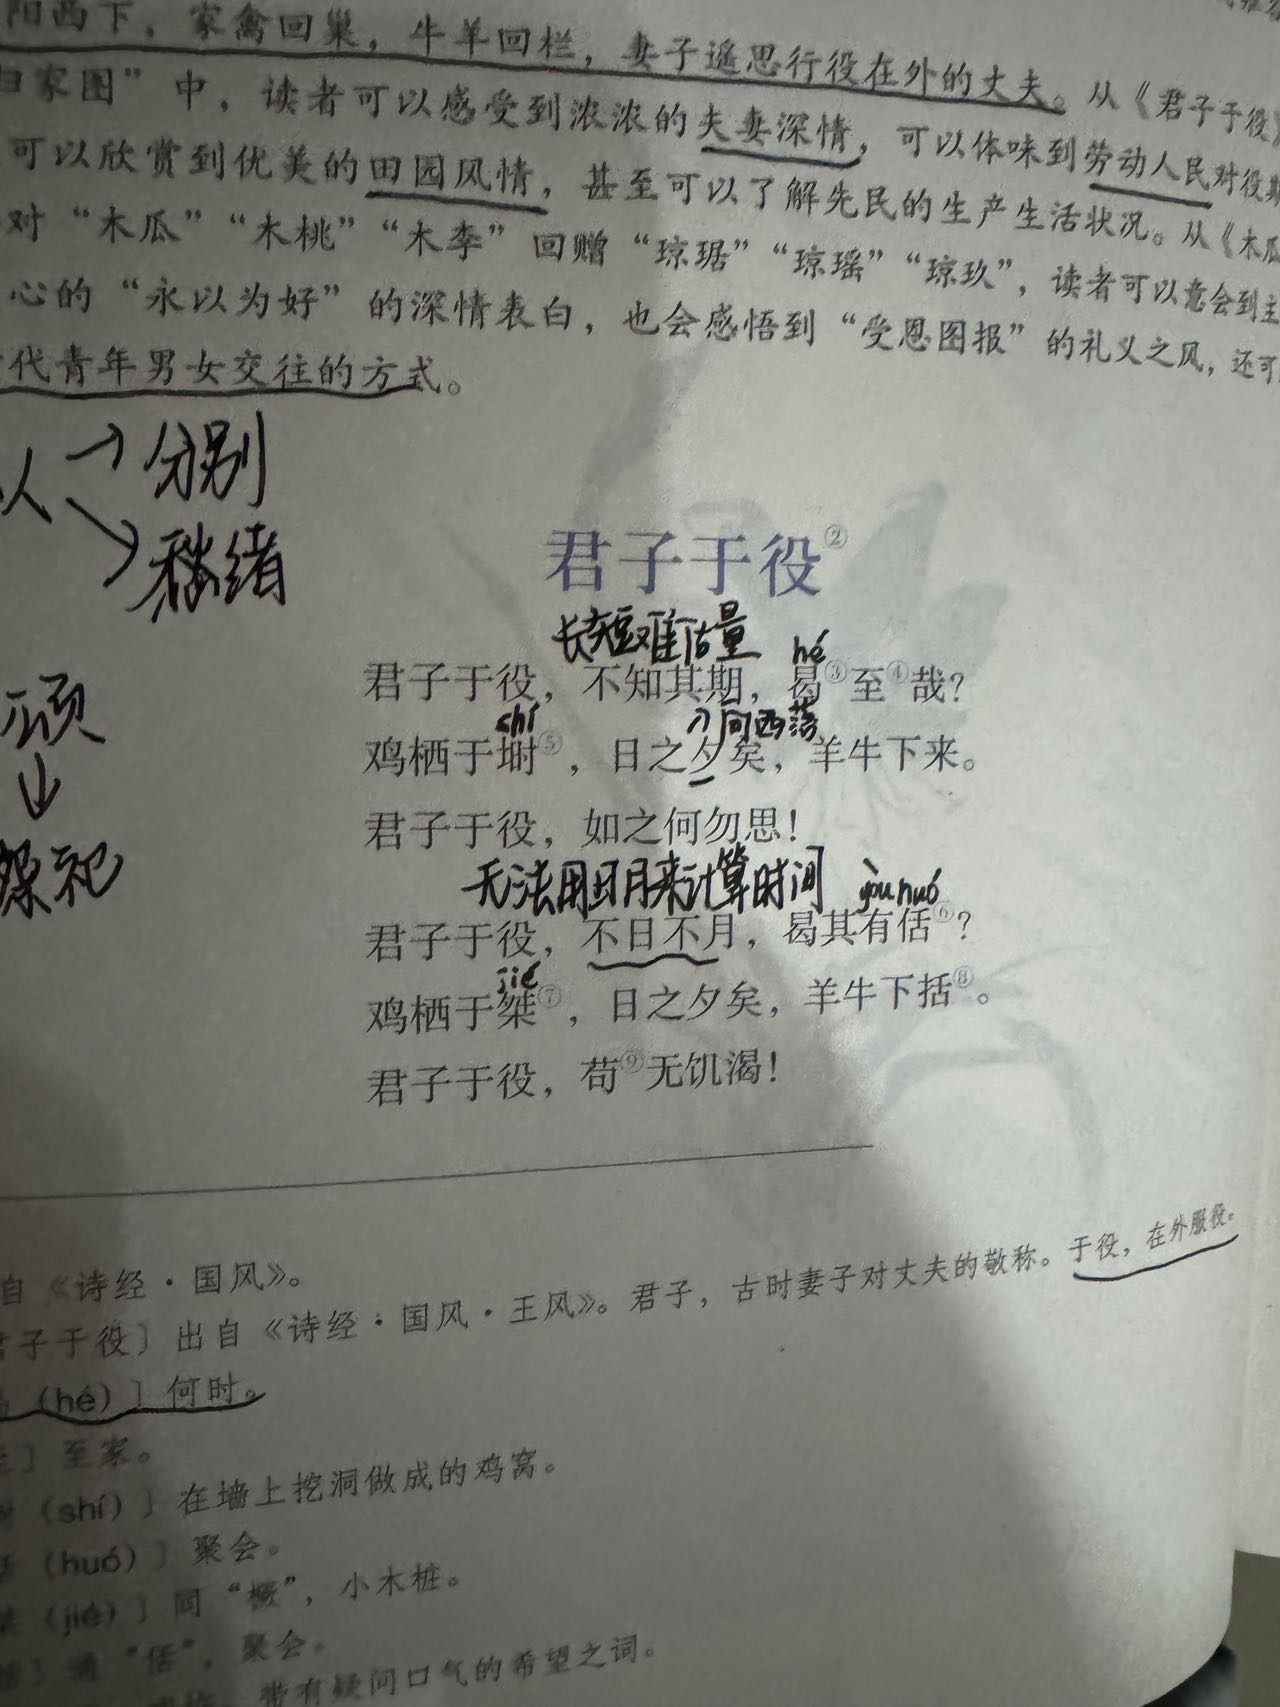 阳西下，家禽回巢，牛羊回栏，妻子遥思行役在外的丈夫。从《君子于役》
归家图”中，读者可以感受到浓浓的夫妻深情，可以体味到劳动人民对役期
可以欣赏到优美的田园风情，甚至可以了解先民的生产生活状况。从《木瓜
对“木瓜”“木桃”“木李”回赠“琼琚”“琼瑶”“琼玖”，读者可以意会到主
心的“永以为好”的深情表白，也会感悟到“受恩图报”的礼义之风，还可
代青年男女交往的方式。
人→分别
→愁绪
君子于役②
长短难估量 hé
君子于役，不知其期，曷③至④哉？
shí 向西落
鸡栖于埘⑤，日之夕矣，羊牛下来。
君子于役，如之何勿思！
无法用日月来计算时间 yòu huó
君子于役，不日不月，曷其有佸⑥？
jié
鸡栖于桀⑦，日之夕矣，羊牛下括⑧。
君子于役，苟⑨无饥渴！
颂
↓
祭祀
自《诗经·国风》。
君子于役〕出自《诗经·国风·王风》。君子，古时妻子对丈夫的敬称。于役，在外服役。
曷（hé）〕何时。
至〕至家。
埘（shí）〕在墙上挖洞做成的鸡窝。
佸（huó）〕聚会。
桀（jié）〕同“橛”，小木桩。
括〕通“佸”，聚会。
带有疑问口气的希望之词。